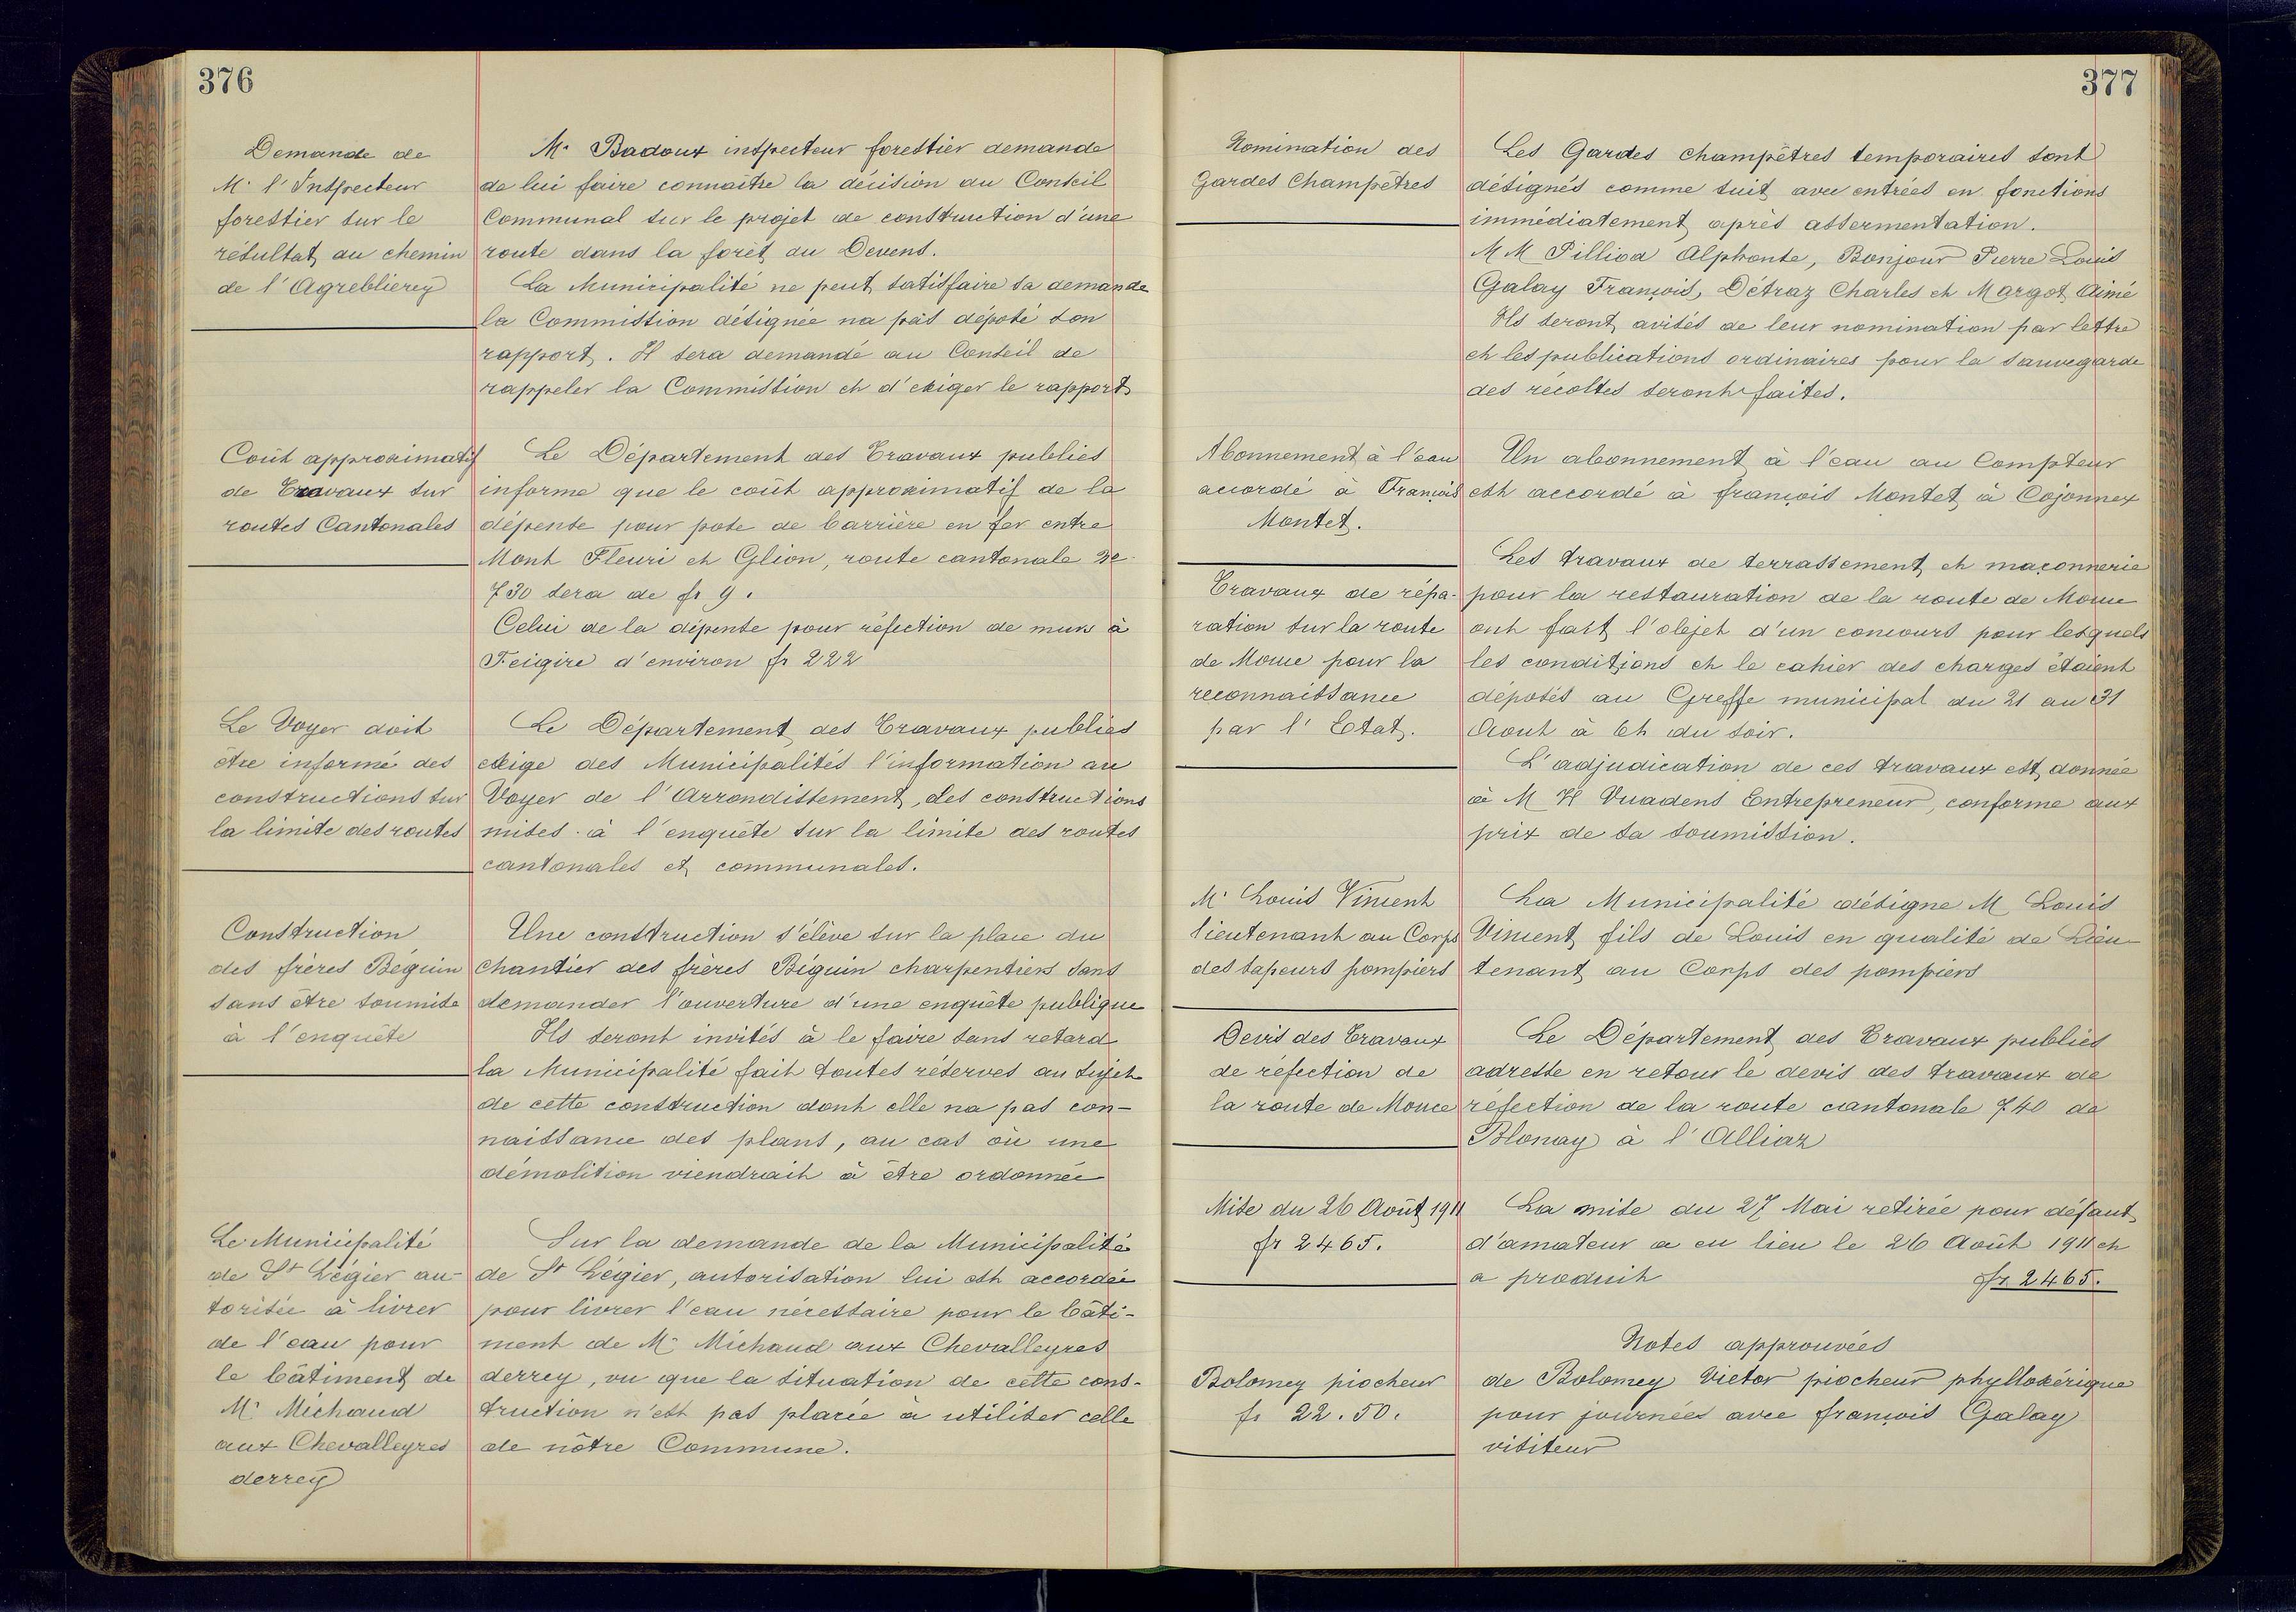 376
Demande de
Mr l'Inspecteur
forestier sur le
résultat au chemin
de l'Agreblierey
Mr Badoux inspecteur forestier demande
de lui faire connaître la décision du Conseil
Communal sur le projet de construction d'une
route dans la forêt du Devens.
La Municipalité ne peut satisfaire sa demande
la Commission désignée na pas déposé son
rapport. Il sera demandé au Conseil de
rappeler la Commission et d'exiger le rapport
Coût approximatif
de Travaux sur
routes Cantonales
Le Département des Travaux publics
informe que le coût approximatif de la
dépense pour pose de barrière en fer entre
Mont Fleuri et Glion, route cantonale No
730 sera de fr 9.
Celui de la dépense pour réfection de murs à
Feigire d'environ fr 222
Le Voyer doit
être informé des
constructions sur
la limite des routes
Le Département des Travaux publics
exige des Municipalités l'information au
Voyer de l'Arrondissement, des constructions
mises à l'enquête sur la limite des routes
cantonales et communales.
Construction
des frères Béguin
sans être soumise
à l'enquête
Une construction s'élève sur la place du
chantier des frères Béguin charpentiers sans
demander l'ouverture d'une enquête publique
Ils seront invités à le faire sans retard
la Municipalité fait toutes réserves au sujet
de cette construction dont elle na pas con-
naissance des plans, au cas où une
démolition viendrait à être ordonnée
Le Municipalité
de St Légier au-
torisée à livrer
de l'eau pour
le bâtiment de
Mr Michaud
aux Chevalleyres
derrey
Sur la demande de la Municipalité
de St Légier, autorisation lui est accordée
pour livrer l'eau nécessaire pour le bâti-
ment de Mr Michaud aux Chevalleyres
derrey, vu que la situation de cette cons-
truction n'est pas placée à utiliser celle
de nôtre Commune.
377
Nomination des
Gardes Champêtres
Les Gardes champêtres temporaires sont
désignés comme suit avec entrées en fonctions
immédiatement après assermentation.
MM Pilliod Alphonse, Bonjour Pierre Louis
Galay François, Détraz Charles et Margot Aimé
Ils seront avisés de leur nomination par lettre
et les publications ordinaires pour la sauvegarde
des récoltes seront faites.
Abonnement à l'eau
accordé à François
Montet.
Un abonnement à l'eau au Compteur
est accordé à françois Montet à Cojonnex
Travaux de répa-
ration sur la route
de Mouce pour la
reconnaissance
par l'Etat.
Les travaux de terrassement et maçonnerie
pour la restauration de la route de Mouce
ont fait l'objet d'un concours pour lesquels
les conditions et le cahier des charges étaient
déposés au Greffe municipal du 21 au 31
Aout à 6h du soir.
L'adjudication de ces travaux est donnée
à M H Vuadens Entrepreneur, conforme aux
prix de sa soumission.
Mr Louis Vincent
lieutenant au Corps
des sapeurs pompiers
La Municipalité désigne M Louis
Vincent fils de Louis en qualité de Lieu-
tenant au Corps des pompiers
Devis des Travaux
de réfection de
la route de Mouce
Le Département des Travaux publics
adresse en retour le devis des travaux de
réfection de la route cantonale 740 de
Blonay à l'Alliaz
Mise du 26 Août 1911
fr 2465.
La mise du 27 Mai retirée pour défaut
d'amateur a eu lieu le 26 Août 1911 et
a produit fr. 2465.
Notes approuvées
Bolomey piocheur
fr 22.50.
de Bolomey Victor piocheur phylloxérique
pour journées avec françois Galay
visiteur